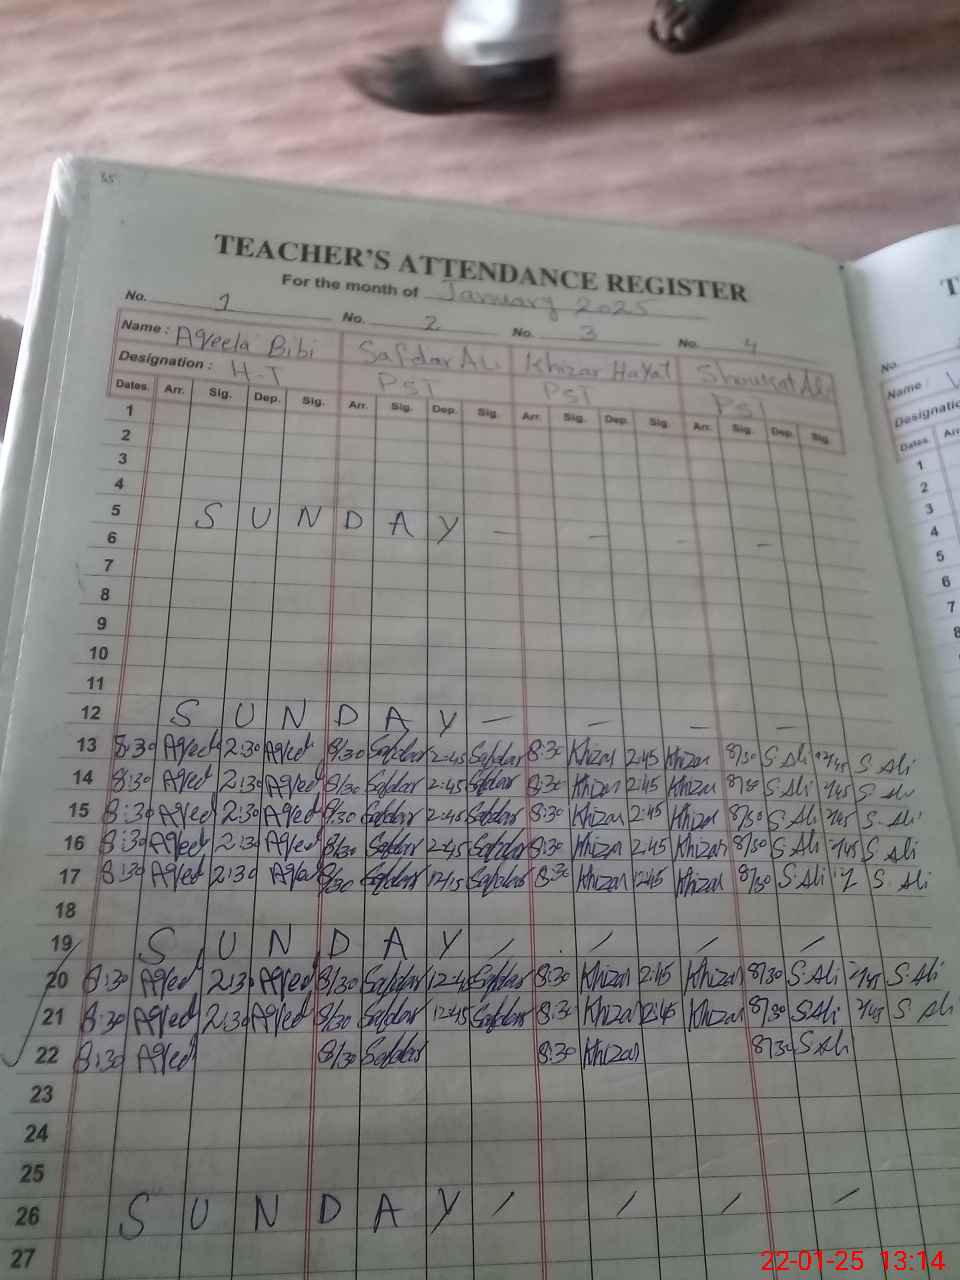 TEACHER'S ATTENDANCE REGISTER
For the month of January 2025
No. 1 No. 2 No. 3 No. 4
Name : Aqeela Bibi Safdar Ali Khizar Hayat Shoukat Ali
Designation : H-T PST PST PST
Dates. Arr. Sig. Dep. Sig. Arr. Sig. Dep. Sig. Arr. Sig. Dep. Sig. Arr. Sig. Dep. Sig.
1
2
3
4
5 S U N D A Y - - - -
6
7
8
9
10
11
12 S U N D A Y - - - -
13 8:30 Aqeel 2:30 Aqeel 8/30 Safdar 2:45 Safdar 8:30 Khizar 2:45 Khizar 8/30 S Ali 2/45 S Ali
14 8:30 Aqeel 2:30 Aqeel 8/30 Safdar 2:45 Safdar 8:30 Khizar 2:45 Khizar 8/30 S Ali 2/45 S Ali
15 8:30 Aqeel 2:30 Aqeel 8/30 Safdar 2:45 Safdar 8:30 Khizar 2:45 Khizar 8/30 S Ali 2/45 S. Ali
16 8:30 Aqeel 2:30 Aqeel 8/30 Safdar 2:45 Safdar 8:30 Khizar 2:45 Khizar 8/30 S Ali 2/45 S Ali
17 8:30 Aqeel 2:30 Aqeel 8/30 Safdar 12:15 Safdar 8:30 Khizar Khizar 8/30 S Ali S. Ali
18
19 S U N D A Y / / / /
20 8:30 Aqeel 2:30 Aqeel 8/30 Safdar 12:45 Safdar 8:30 Khizar 2:45 Khizar 8/30 S.Ali 2/45 S.Ali
21 8:30 Aqeel 2:30 Aqeel 8/30 Safdar 12:45 Safdar 8:30 Khizar 2:45 Khizar 8/30 S Ali 2/45 S Ali
22 8:30 Aqeel 8/30 Safdar 8:30 Khizar 8/30 S Ali
23
24
25
26 S U N D A Y / / / /
27
No.
Name :
Designatio
Dates. Arr
1
2
3
4
5
6
7
8
22-01-25 13:14